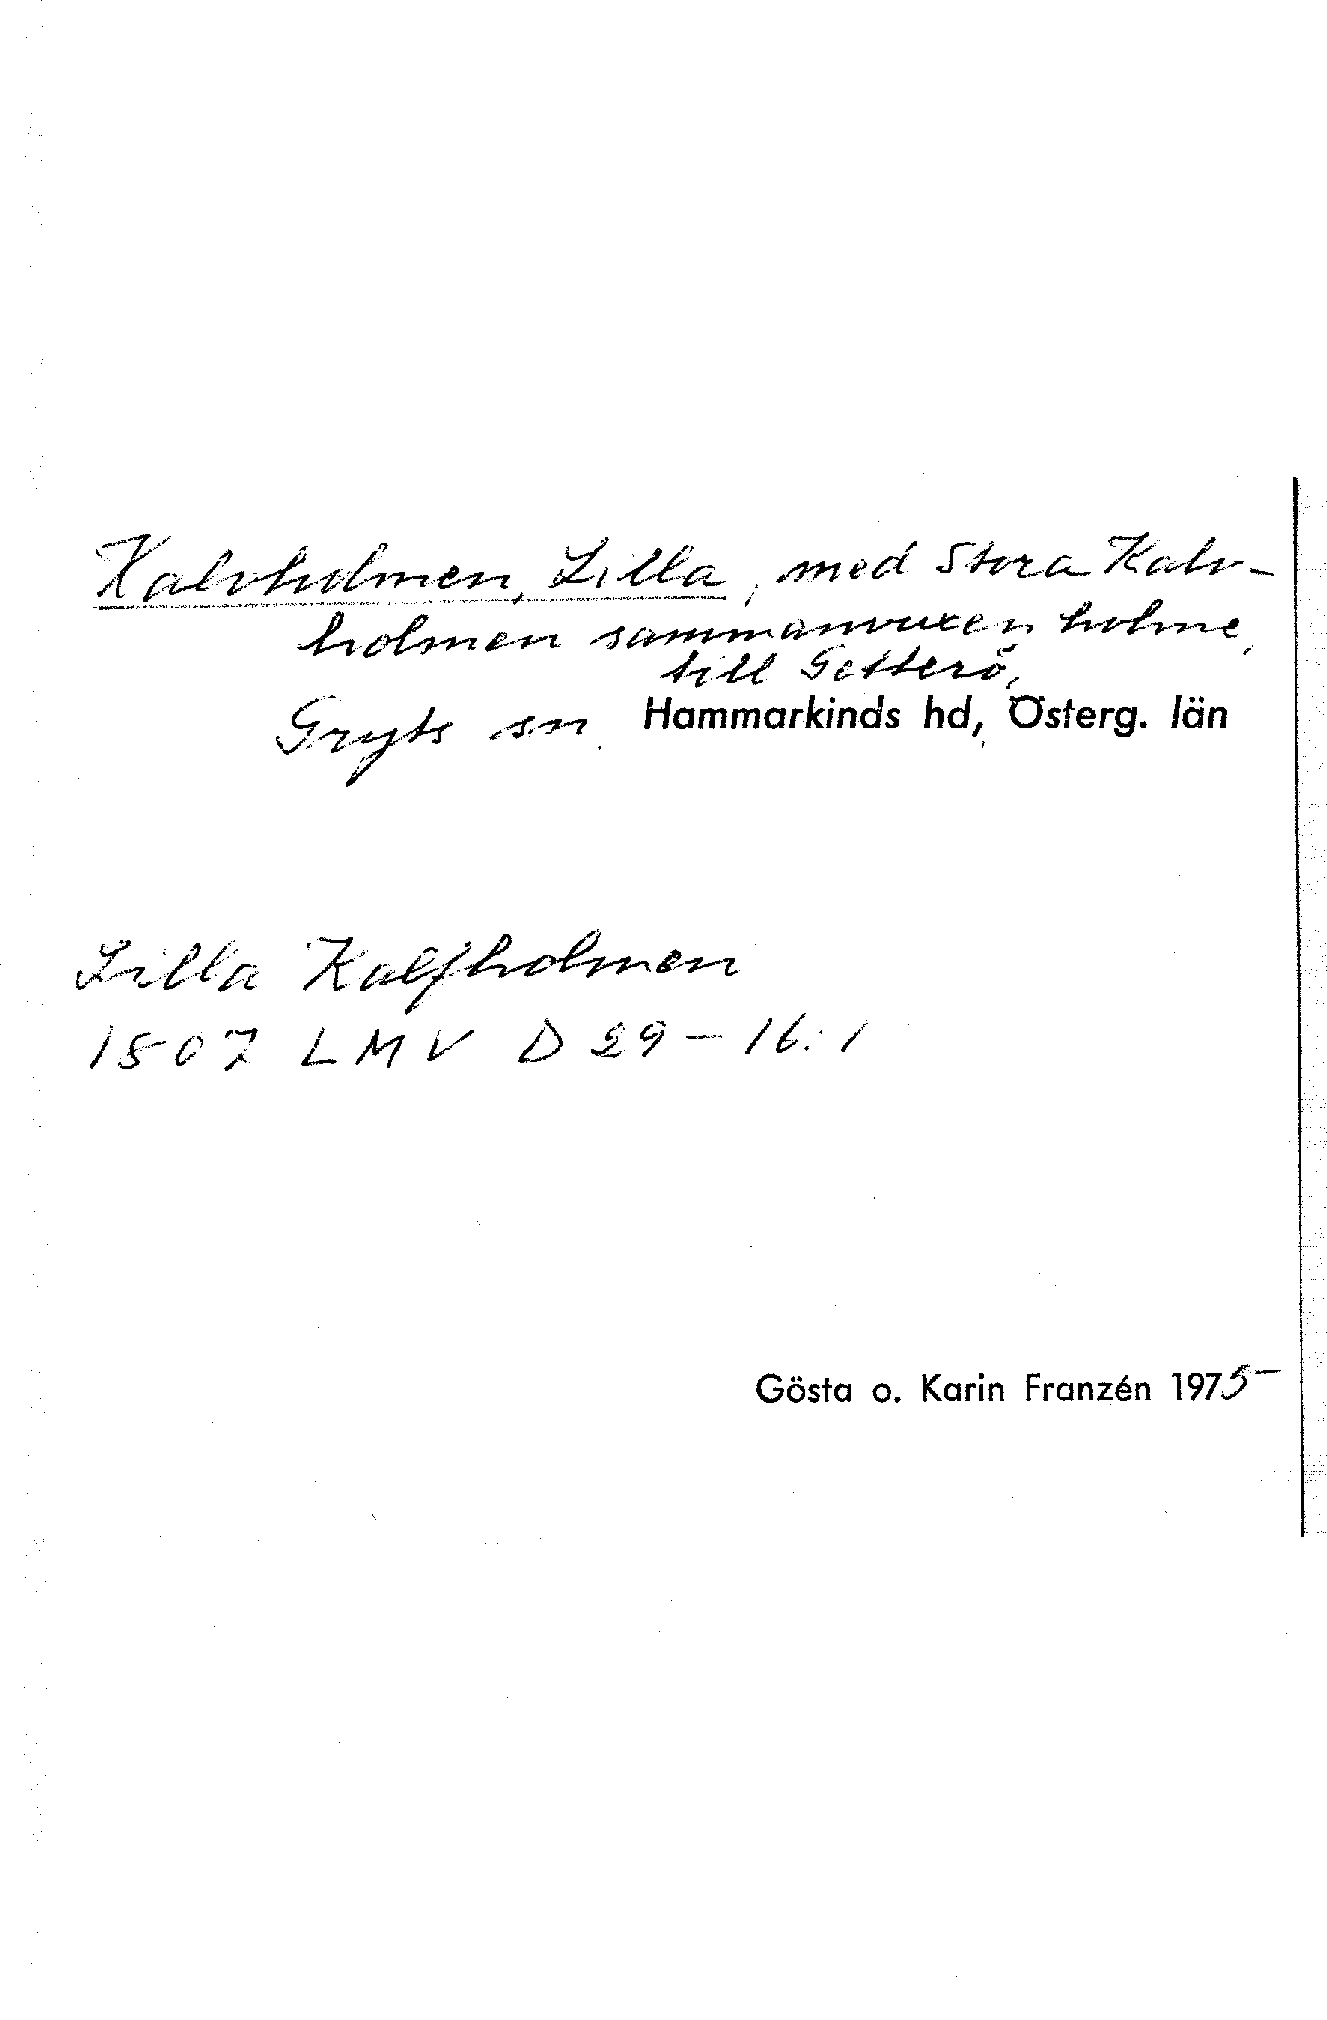 Kalvholmen, Lilla, med Stora Kalv-
holmen sammanvuxen holme,
till Getterö,
Gryts sn Hammarkinds hd, Österg. län
Lilla Kalfholmen
1807 LMV D 29-16:1
Gösta o. Karin Franzén 1975